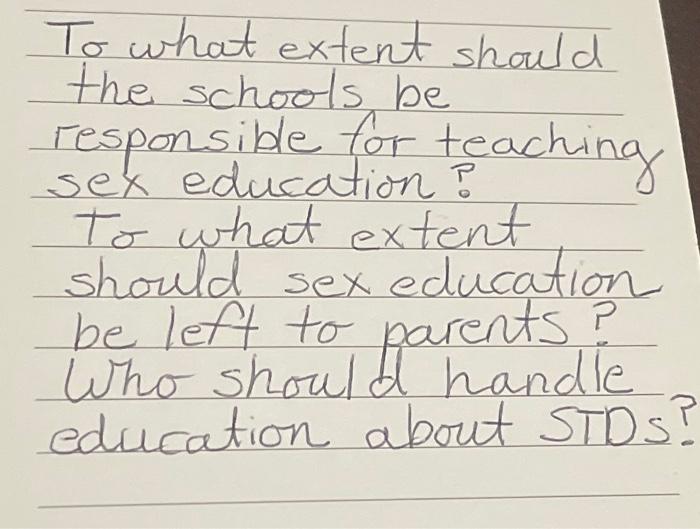 To what extent should
the schools be
responsible for teaching
sex education?
To what extent
should sex education
be left to parents?
Who should handle
education about STDs?